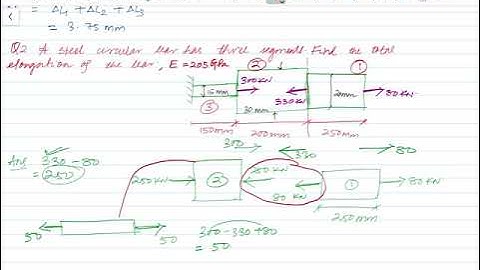 = ΔL1 + ΔL2 + ΔL3
= 3.75 mm
Q2 A steel circular bar has three segments. Find the total
elongation of the bar, E = 205 GPa
②
①
300KN
15mm
330KN
20mm
80 KN
③
30mm
150mm
200mm
250mm
300
330
80
Ans 330-80
= 250
250KN
②
250 KN
80 KN
①
80 KN
250mm
50
50
300-330+80
= 50